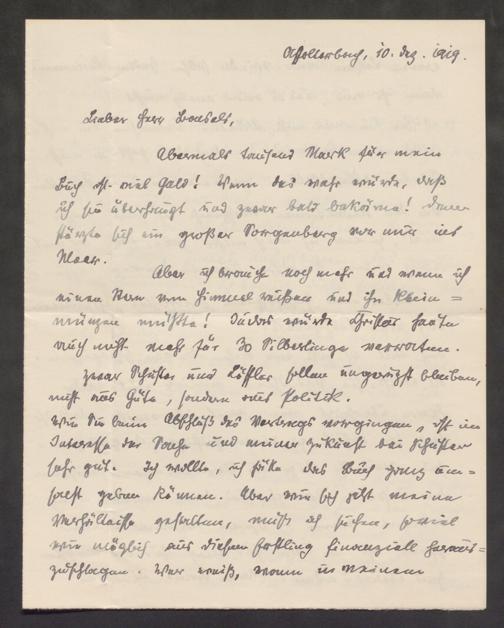 Affolterbach, 10. Dez. 1919.
Lieber Herr Bonsels,
Abermals tausend Mark für mein
Buch ist viel Geld! Wenn das wahr würde, daß
ich sie überhaupt und zwar bald bekäme! Dann
stürzte sich ein großer Sorgenberg vor mir ins
Meer.
Aber ich brauche noch mehr und wenn ich
einen Stern vom Himmel reißen und ihn klein=
münzen müßte! Judas würde Christus heute
auch nicht mehr für 30 Silberlinge verraten.
Zwar Schuster und Löffler sollen ungerupft bleiben,
nicht aus Güte, sondern aus Politik.
Wie Sie beim Abschluß des Vertrags vorgingen, ist im
Interesse der Sache und meiner Zukunft bei Schuster
sehr gut. Ich wollte, ich hätte das Buch ganz um=
sonst geben können. Aber wie sich jetzt meine
Verhältnisse gestalten, muß ich suchen, soviel
wie möglich aus diesem Erstling finanziell heraus=
zuschlagen. Wer weiß, wann in meinem